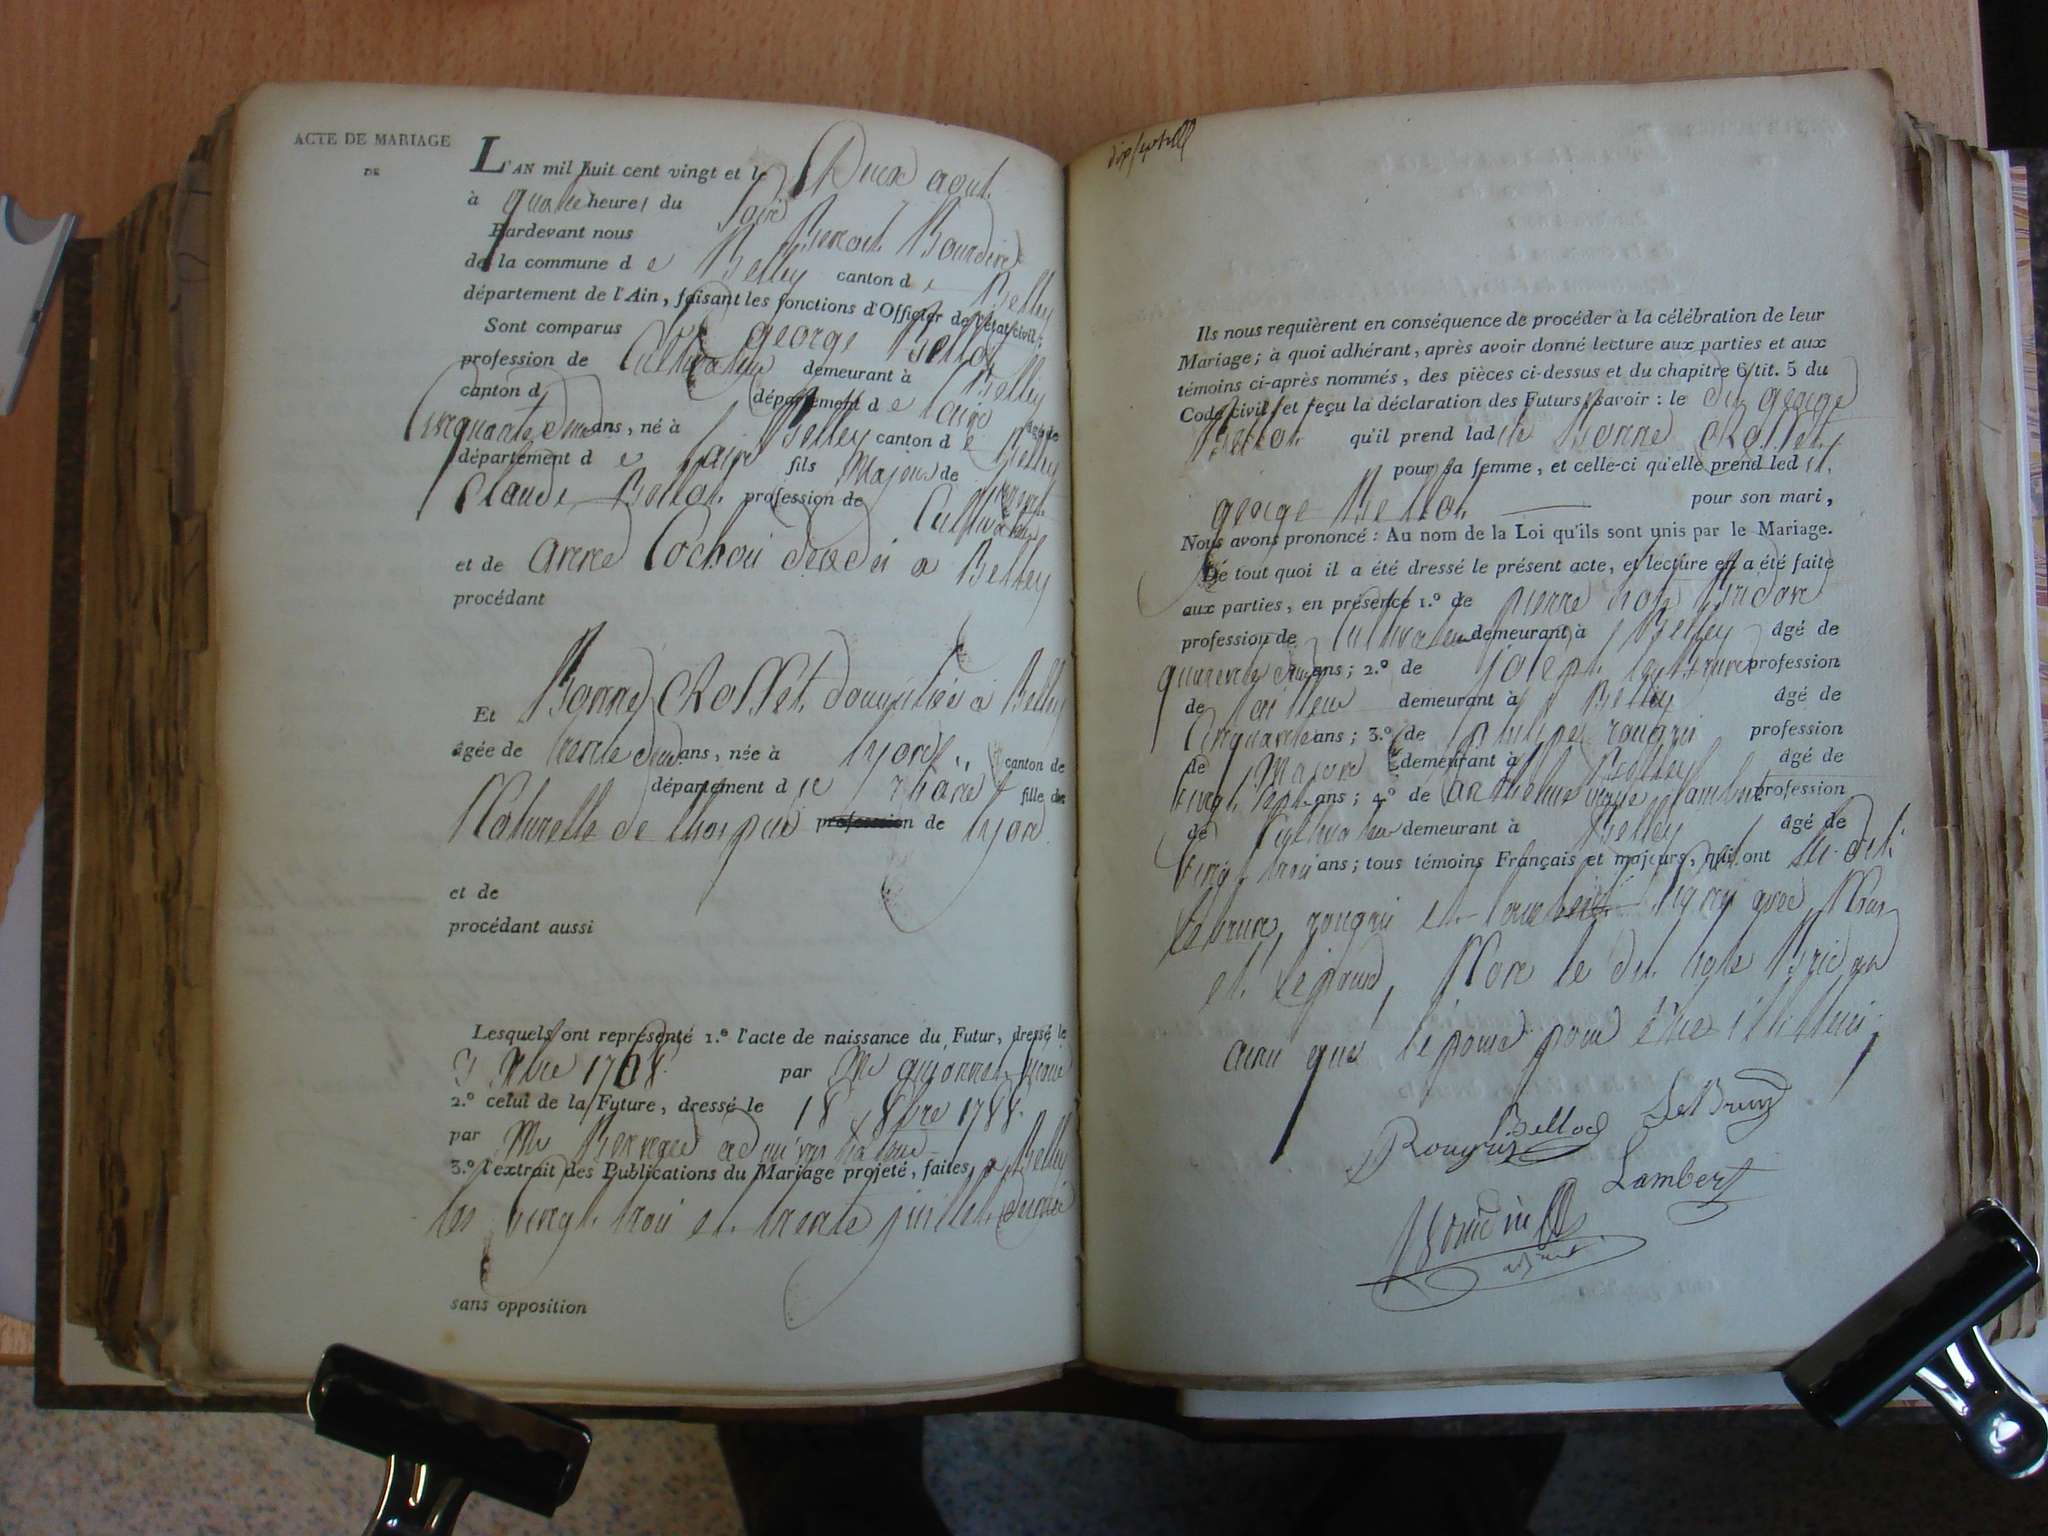 ACTE DE MARIAGE
DE
L'AN mil huit cent vingt et le Deux aout
à quatre heures du soir
Pardevant nous Benoit
de la commune de Belley canton de Belley
département de l'Ain, faisant les fonctions d'Officier de l'état civil,
Sont comparus george Bellod
profession de Cultivateur demeurant à Belley
canton d département de l'ain âgé de
Cinquante deux ans, né à Belley canton de Belley
département de l'ain fils Majeur de
Claude Bellod profession de Cultivateur
et de anne Cochon décédés a Belley
procédant
Et Bonne Rosset domiciliée à Belley
âgée de trente deux ans, née à Lyon canton de
département du rhône fille de
Naturelle de l'hospice profession de Lyon
et de
procédant aussi
Lesquels ont représenté 1.º l'acte de naissance du Futur, dressé le
1768 par Mr vicaire
2.º celui de la Future, dressé le 18 8bre 1788
par Mr
3.º l'extrait des Publications du Mariage projeté, faites à Belley
les vingt trois et trente juillet dernier
sans opposition
Ils nous requièrent en conséquence de procéder à la célébration de leur
Mariage; à quoi adhérant, après avoir donné lecture aux parties et aux
témoins ci-après nommés, des pièces ci-dessus et du chapitre 6, tit. 5 du
Code civil, et reçu la déclaration des Futurs, savoir : le dit george
Bellod qu'il prend ladite Bonne Rosset
pour sa femme, et celle-ci qu'elle prend ledit
george Bellod pour son mari,
Nous avons prononcé : Au nom de la Loi qu'ils sont unis par le Mariage.
De tout quoi il a été dressé le présent acte, et lecture en a été faite
aux parties, en présence 1.º de pierre
profession de Cultivateur demeurant à Belley âgé de
quarente deux ans; 2.º de joseph profession
de tailleur demeurant à Belley âgé de
Cinquante ans; 3.º de philipe rougris profession
de Maçon demeurant à Belley âgé de
vingt sept ans; 4.º de anthelme lambert profession
de Cultivateur demeurant à Belley âgé de
vingt trois ans; tous témoins Français et majeurs, qui ont les dits
lebrun, rougris et lambert signé avec Nous
et l'époux, Non le dit
ainsi que l'épouse pour être illitérés
Bellod LeBrun
Rougris
Lambert